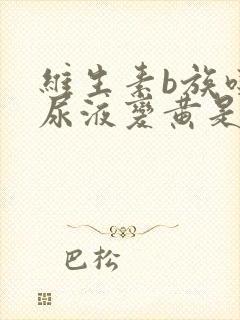 維生素b族
尿液變黃是
巴松